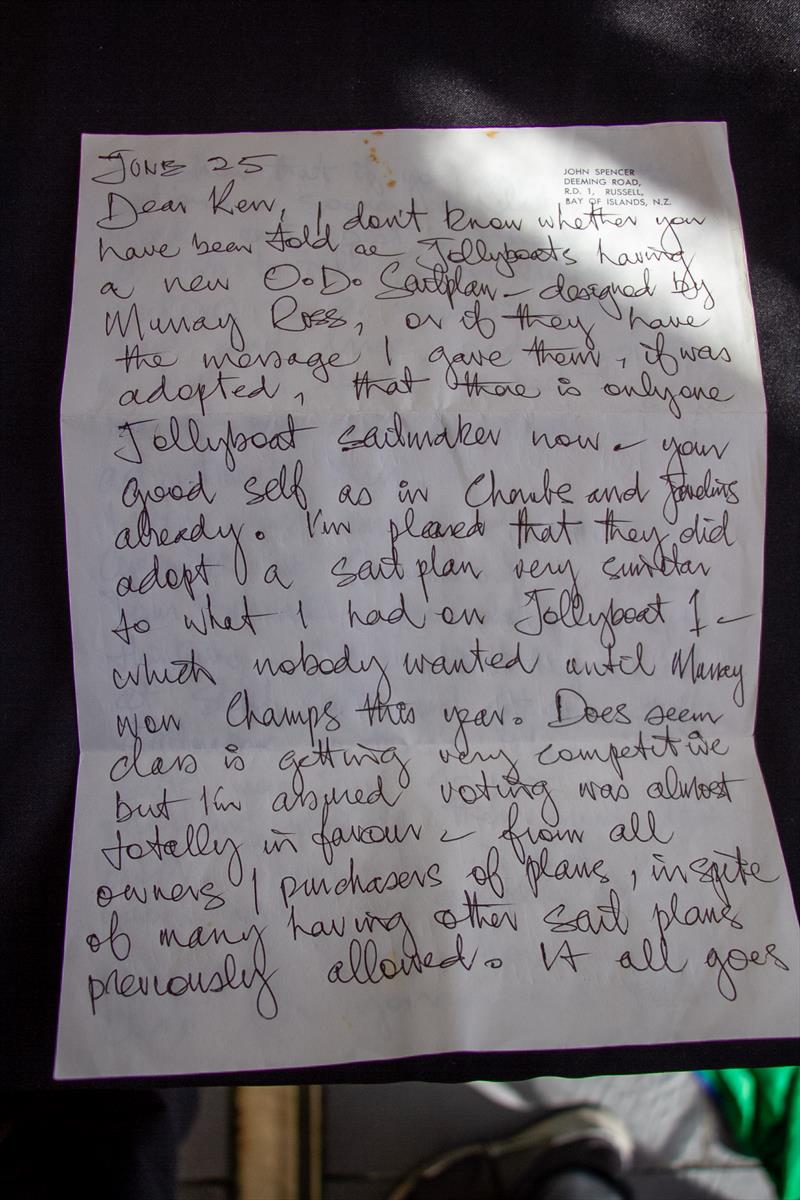 JUNE 25
JOHN SPENCER
DEEMING ROAD,
R.D. 1, RUSSELL,
BAY OF ISLANDS, N.Z.
Dear Ken, I don't know whether you
have been told re Jollyboats having
a new O.D. Sailplan – designed by
Murray Ross, or if they have
the message I gave them, if was
adopted, that there is only one
Jollyboat sailmaker now – your
good self as in Cherubs and Javelins
already. I'm pleased that they did
adopt a sail plan very similar
to what I had on Jollyboat I –
which nobody wanted until Murray
won Champs this year. Does seem
class is getting very competitive
but I'm assured voting was almost
totally in favour – from all
owners / purchasers of plans, inspite
of many having other sail plans
previously allowed. It all goes